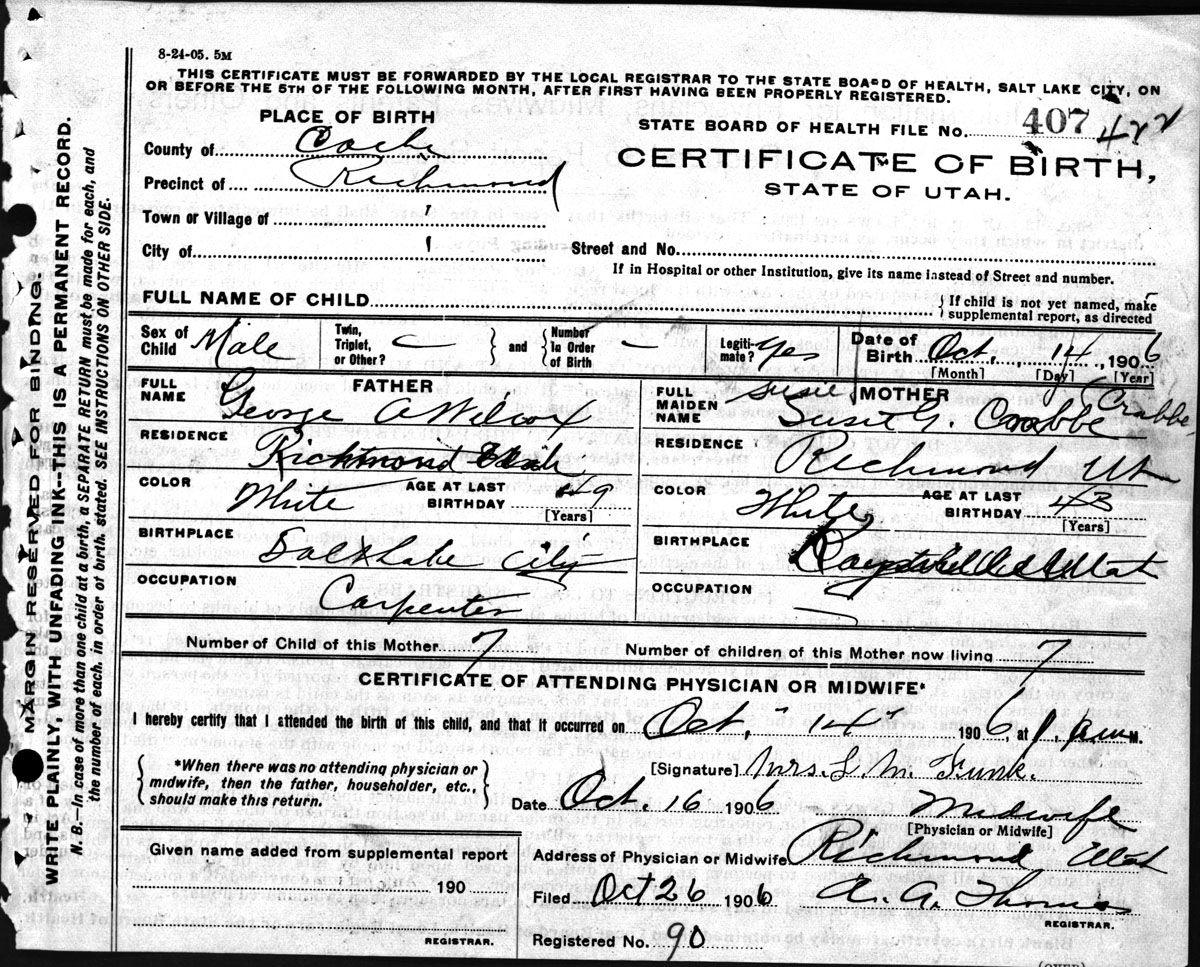 8-24-05. 5M
THIS CERTIFICATE MUST BE FORWARDED BY THE LOCAL REGISTRAR TO THE STATE BOARD OF HEALTH, SALT LAKE CITY, ON
OR BEFORE THE 5TH OF THE FOLLOWING MONTH, AFTER FIRST HAVING BEEN PROPERLY REGISTERED.
PLACE OF BIRTH
STATE BOARD OF HEALTH FILE No. 407 422
County of Cache
CERTIFICATE OF BIRTH,
Precinct of Richmond
STATE OF UTAH.
Town or Village of "
City of " Street and No.
If in Hospital or other Institution, give its name instead of Street and number.
FULL NAME OF CHILD
{ If child is not yet named, make
supplemental report, as directed
Sex of Child Male
Twin, Triplet, or Other? — } and { Number in Order of Birth —
Legitimate? Yes
Date of Birth Oct. 14 1906
[Month] [Day] [Year]
FULL NAME FATHER
George A Wilcox
FULL MAIDEN NAME MOTHER
Susie
Susie G. Crabbe (Crabbe
RESIDENCE
Richmond Utah
RESIDENCE
Richmond Ut
COLOR White AGE AT LAST BIRTHDAY 49 [Years]
COLOR White AGE AT LAST BIRTHDAY 43 [Years]
BIRTHPLACE
Salt Lake City
BIRTHPLACE
OCCUPATION
Carpenter
OCCUPATION
—
Number of Child of this Mother 7
Number of children of this Mother now living 7
CERTIFICATE OF ATTENDING PHYSICIAN OR MIDWIFE*
I hereby certify that I attended the birth of this child, and that it occurred on Oct. " 14 " 1906, at 1. a.m. M.
{ *When there was no attending physician or
midwife, then the father, householder, etc.,
should make this return. }
[Signature] Mrs. L. M. Funk.
Date Oct. 16 1906 Midwife
[Physician or Midwife]
Given name added from supplemental report
190
REGISTRAR.
Address of Physician or Midwife Richmond Utah
Filed Oct 26 1906 A. A. Thomas
REGISTRAR.
Registered No. 90
(OVER)
MARGIN RESERVED FOR BINDING.
WRITE PLAINLY, WITH UNFADING INK--THIS IS A PERMANENT RECORD.
N. B.—In case of more than one child at a birth, a SEPARATE RETURN must be made for each, and
the number of each, in order of birth, stated. SEE INSTRUCTIONS ON OTHER SIDE.